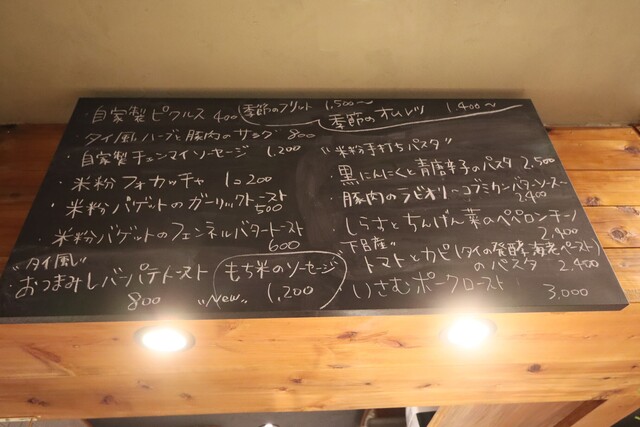 ・自家製ピクルス 400
季節のフリット 1,500〜
季節のオムレツ 1,400〜
・タイ風ハーブと豚肉のサラダ 800
・自家製チェンマイソーセージ 1,200
・米粉フォカッチャ 1=200
・米粉バゲットのガーリックトースト
500
・米粉バゲットのフェンネルバタートースト
600
"タイ風"
・おつまみレバーパテトースト
800
もち米のソーセージ
"New" 1,200
"米粉手打ちパスタ"
・黒にんにくと青唐辛子のパスタ 2,500
・豚肉のラビオリ〜コブミカンバターソース〜
2,400
・しらすとちんげん菜のペペロンチーノ
2,400
トマトとカピ(タイの発酵海老ペースト)
のパスタ 2,400
いさむポークロースト
3,000